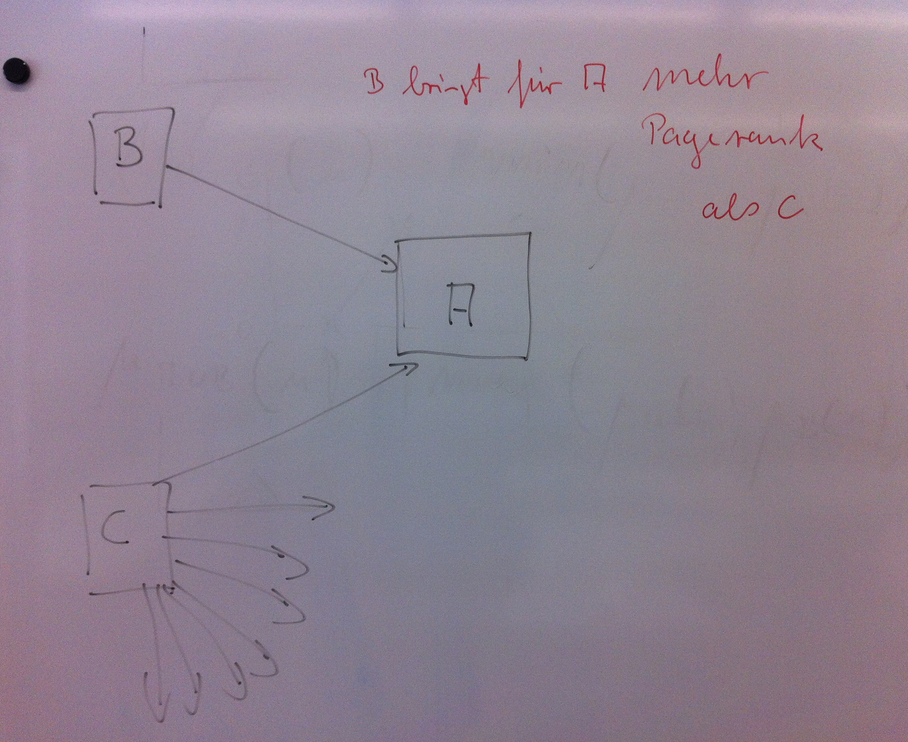 B bringt für A mehr
Pagerank
als C
B
A
C